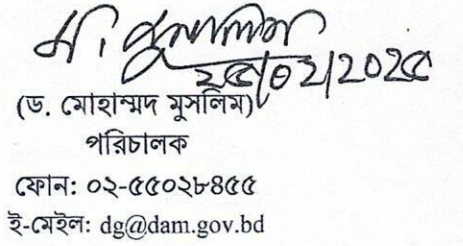 ২৫/০২/২০২৫
(ড. মোহাম্মদ মুসলিম)
পরিচালক
ফোন: ০২-৫৫০২৮৪৫৫
ই-মেইল: dg@dam.gov.bd